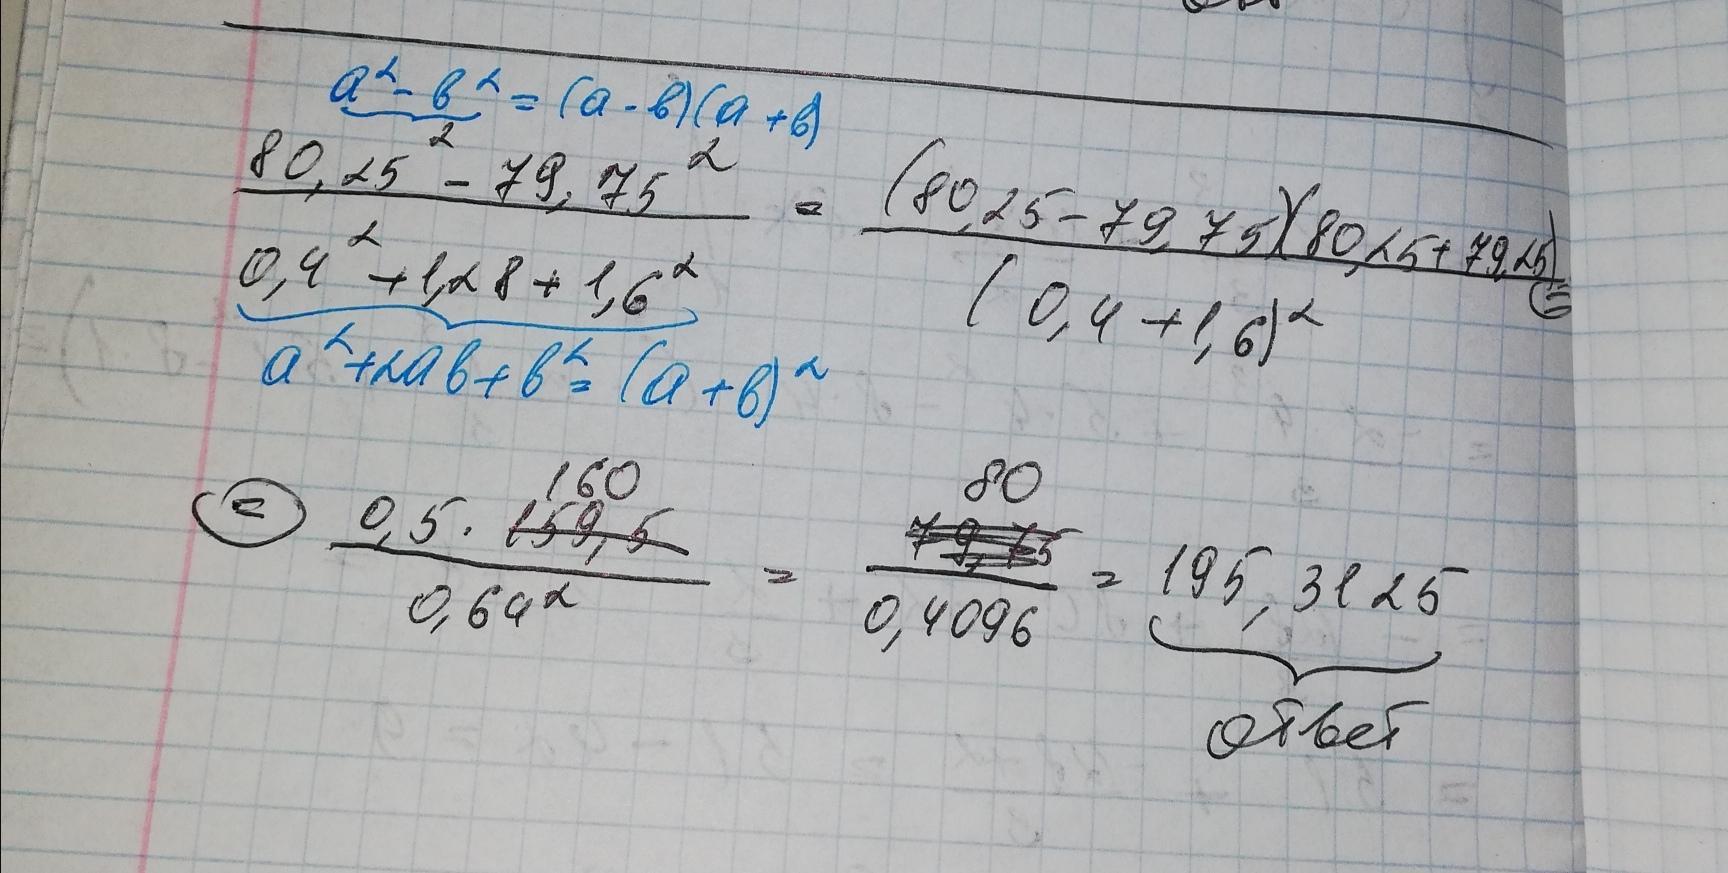 a² - b² = (a - b)(a + b)
80,25² - 79,75² / 0,4² + 1,28 + 1,6² = (80,25 - 79,75)(80,25 + 79,25) / (0,4 + 1,6)² =
a² + 2ab + b² = (a + b)²
160 80
= 0,5 · 159,5 / 0,64² = 79,75 / 0,4096 = 195,3125
ответ